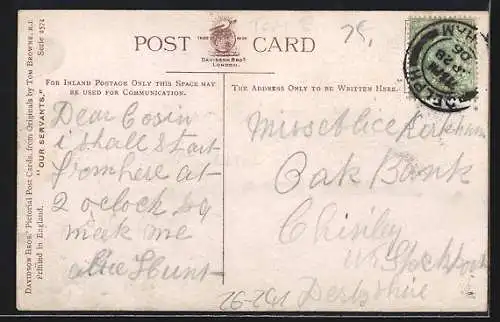 POST CARD
DAVIDSON BROS.
LONDON.
FOR INLAND POSTAGE ONLY THIS SPACE MAY
BE USED FOR COMMUNICATION.
THE ADDRESS ONLY TO BE WRITTEN HERE.
DAVIDSON BROS.' Pictorial Post Cards, from Originals by TOM BROWNE, R.I.
Printed in England. "OUR SERVANTS." Serie 2574
Dear Cosin
i shall start
from here at
2 oclock so
meak me
Hunt
Miss Alice Kirkham
Oak Bank
Chisley
Nr Stockport
Derbyshire
26-241